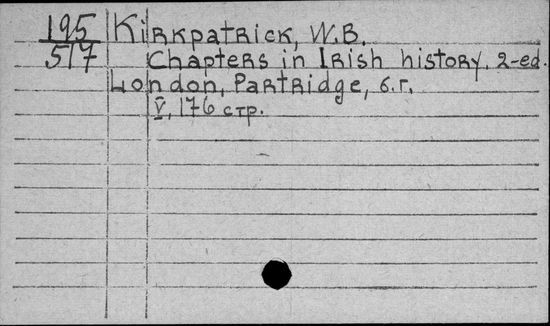 195 Kirkpatrick, W.B.
517 Chapters in Irish history. 2-ed.
London, Partridge, б.г.
V, 176 стр.